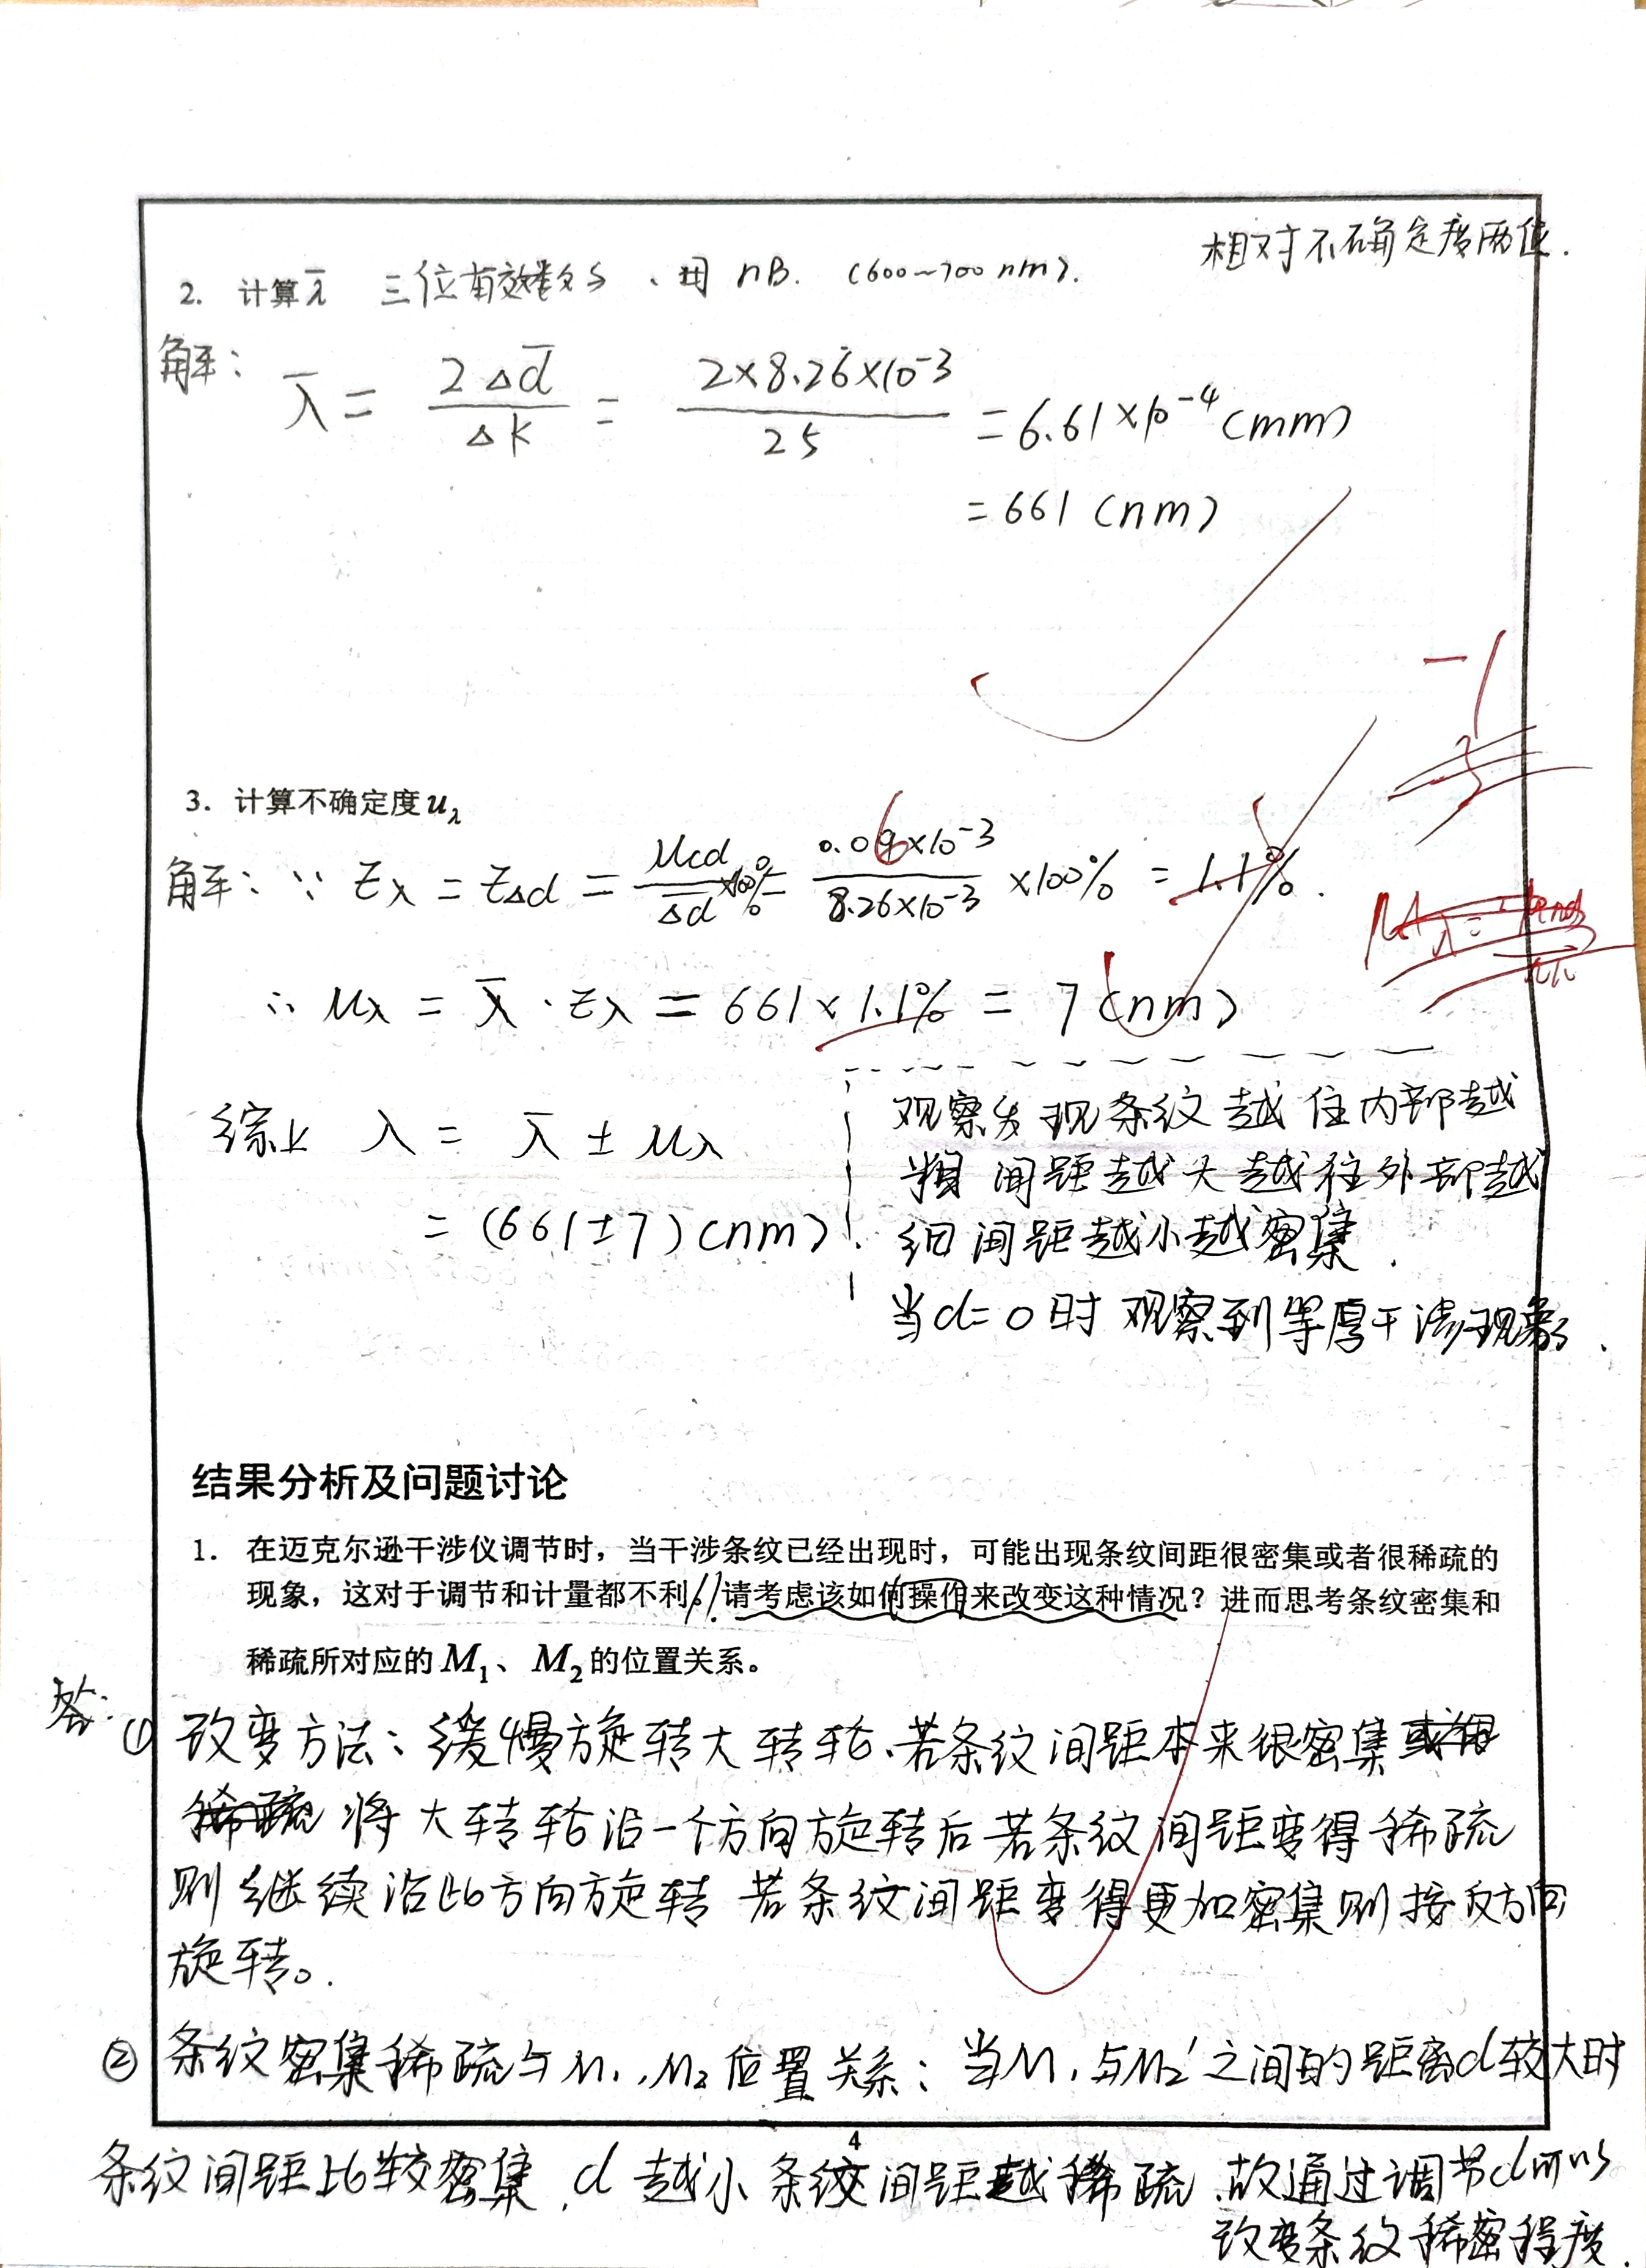 相对不确定度两位.
2. 计算λ̄ 三位有效数字、用 nB. (600~700 nm).
解: λ̄ = 2Δd̄/Δk = 2×8.26×10⁻³/25 = 6.61×10⁻⁴ (mm)
= 661 (nm)
-1
3. 计算不确定度u_λ
解: ∵ Eλ = EΔd = μcd/Δd ×100% = 0.06×10⁻³/8.26×10⁻³ ×100% = 1.1%.
∴ μλ = λ̄ · Eλ = 661 × 1.1% = 7 (nm)
综上 λ = λ̄ ± μλ
= (661±7) (nm)
观察发现条纹越往内部越
粗 间距越大 越往外部越
细 间距越小越密集.
当d=0时 观察到等厚干涉现象.
结果分析及问题讨论
1. 在迈克尔逊干涉仪调节时，当干涉条纹已经出现时，可能出现条纹间距很密集或者很稀疏的
现象，这对于调节和计量都不利。请考虑该如何操作来改变这种情况？进而思考条纹密集和
稀疏所对应的M₁、M₂的位置关系。
答:
① 改变方法: 缓慢旋转大转轮、若条纹间距本来很密集
将大转轮沿一个方向旋转后若条纹间距变得稀疏
则继续沿此方向旋转 若条纹间距变得更加密集则按反方向
旋转。
② 条纹密集稀疏与M₁,M₂位置关系: 当M₁与M₂′之间的距离d较大时
4
条纹间距比较密集, d 越小条纹间距越稀疏, 故通过调节d
改变条纹稀密程度.